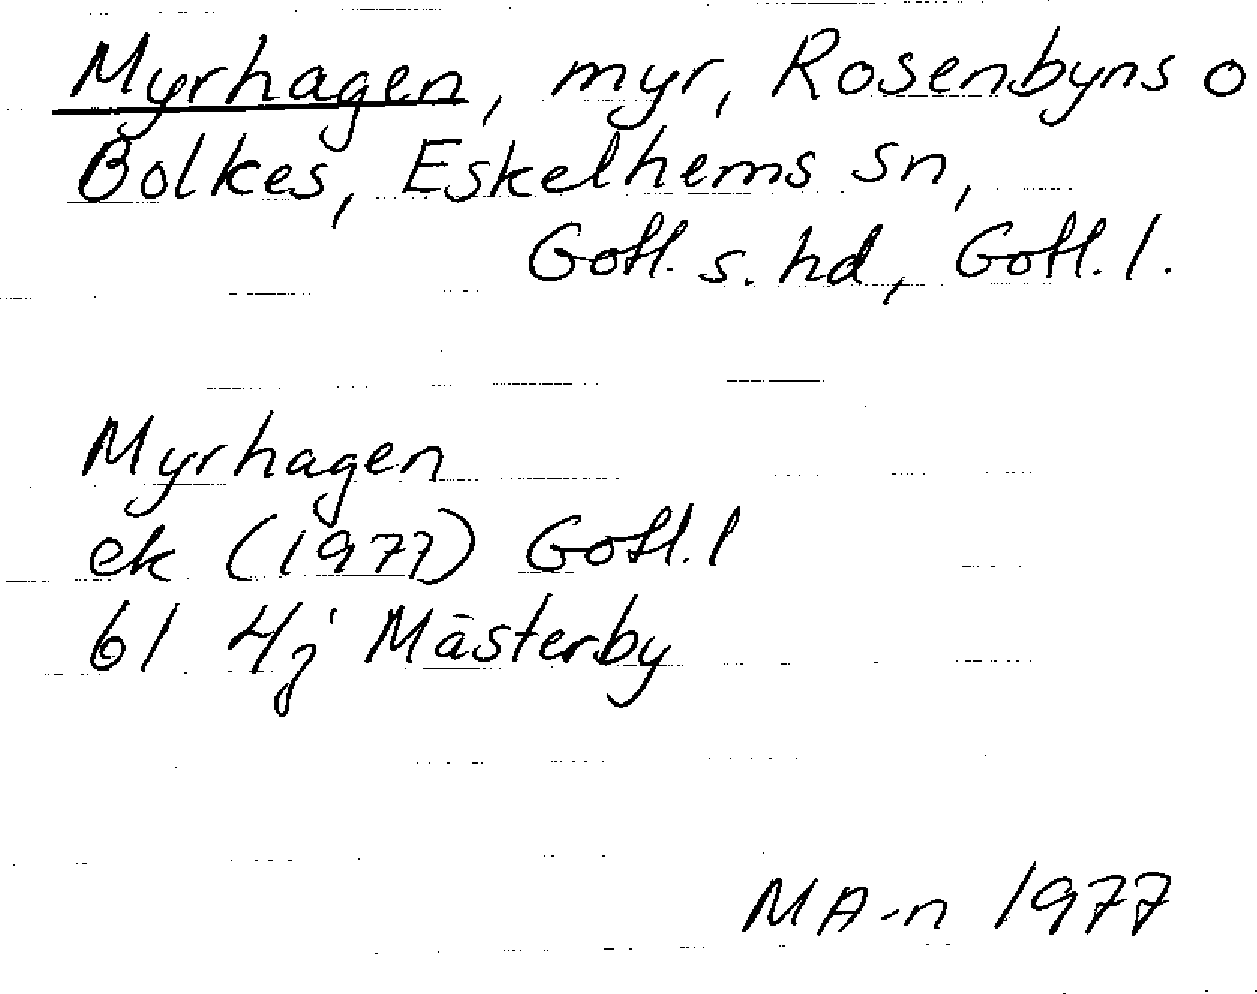 Myrhagen, myr, Rosenbyns o
Bolkes, Eskelhems sn,
Gotl. s. hd, Gotl. l.
Myrhagen
ek (1977) Gotl. l
61 4j Mästerby
MA-n 1977